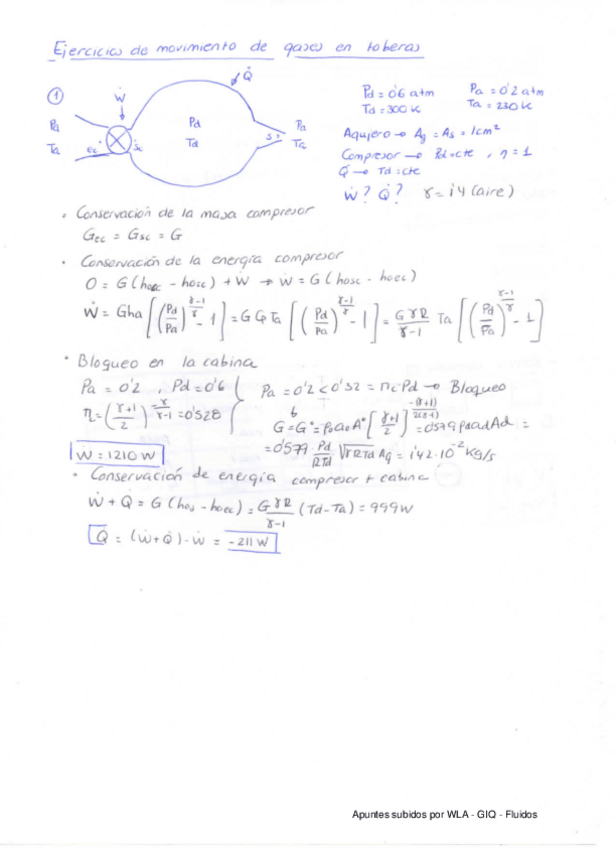 Ejercicios de movimiento de gases en toberas
①
Ẇ
Q̇
Pa
Ta
ec
sc
Pd
Td
s
Pa
Ta
Pd = 0'6 atm Pa = 0'2 atm
Td = 300 K Ta = 230 K
Agujero → Ag = As = 1cm²
Compresor → Pd = cte , η = 1
Q̇ → Td = cte
Ẇ? Q̇? γ = 1'4 (aire)
• Conservación de la masa compresor
Gec = Gsc = G
• Conservación de la energía compresor
0 = G (hoec - hosc) + Ẇ → Ẇ = G (hosc - hoec)
Ẇ = Gha [(Pd/Pa)^(γ-1/γ) - 1] = G Cp Ta [(Pd/Pa)^(γ-1/γ) - 1] = GγR/γ-1 Ta [(Pd/Pa)^(γ-1/γ) - 1]
• Bloqueo en la cabina
Pa = 0'2 , Pd = 0'6
η = (γ+1/2)^(-γ/γ-1) = 0'528
Pa = 0'2 < 0'32 = ηc Pd → Bloqueo
G = G* = ρoaoA* [γ+1/2]^(-(γ+1)/2(γ-1)) = 0'579 ρdadAd =
= 0'579 · Pd/RTd √γRTd Ag = 1'42·10⁻² kg/s
Ẇ = 1210 W
• Conservación de energía compresor + cabina
Ẇ + Q̇ = G (hos - hoec) = GγR/γ-1 (Td - Ta) = 999 W
Q̇ = (Ẇ+Q̇) - Ẇ = -211 W
Apuntes subidos por WLA - GIQ - Fluidos